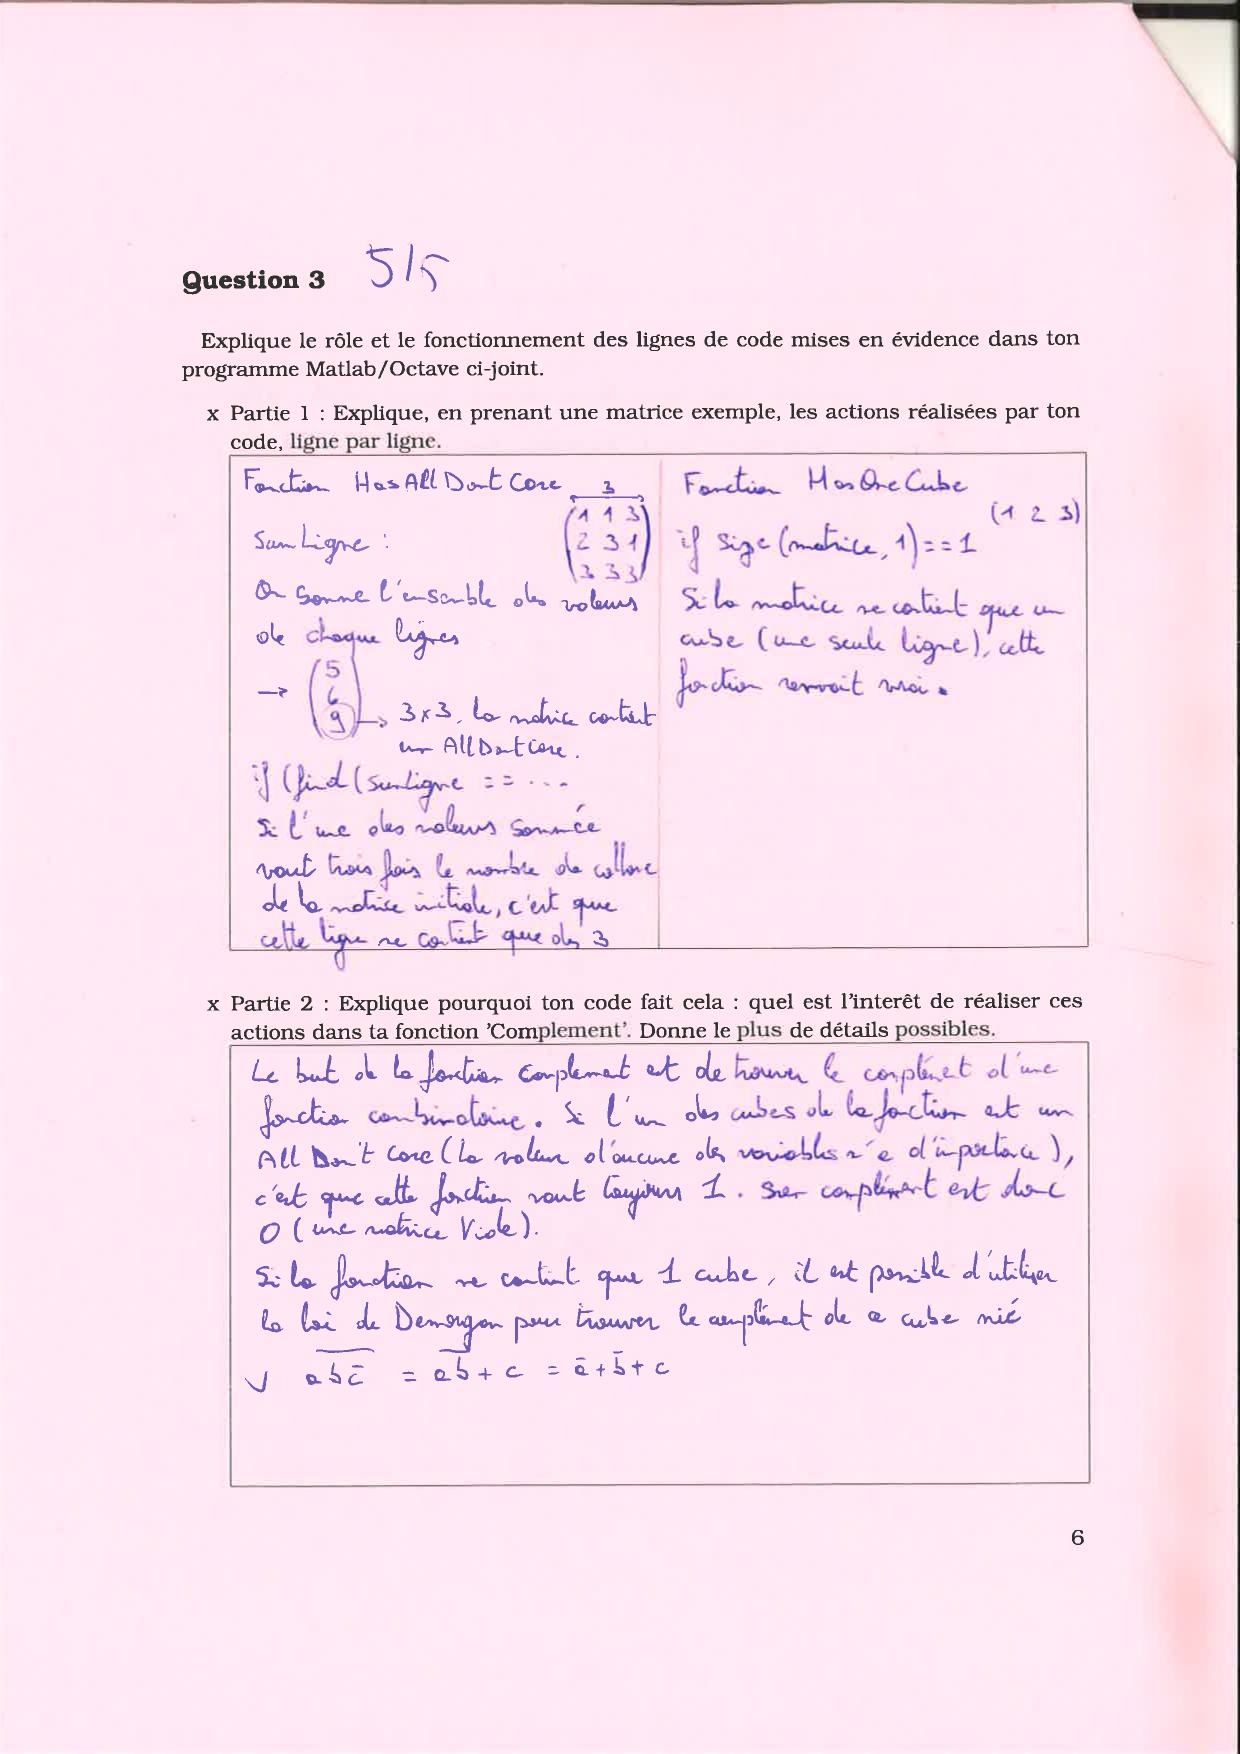 Question 3 5/5
Explique le rôle et le fonctionnement des lignes de code mises en évidence dans ton
programme Matlab/Octave ci-joint.
x Partie 1 : Explique, en prenant une matrice exemple, les actions réalisées par ton
code, ligne par ligne.
Fonction HasAllDontCare
3
(1 1 3
2 3 1
3 3 3)
SumLigne :
On somme l'ensemble des valeurs
de chaque lignes
→ (5
6
9) → 3x3, la matrice contient
un AllDontCare.
if (find(sumligne == ...
Si l'une des valeurs sommée
vaut trois fois le nombre de collone
de la matrice initiale, c'est que
cette ligne ne contient que des 3
Fonction HasOneCube
(1 2 3)
if size(matrice, 1)==1
Si la matrice ne contient que un
cube (une seule ligne), cette
fonction renvoit vrai.
x Partie 2 : Explique pourquoi ton code fait cela : quel est l'interêt de réaliser ces
actions dans ta fonction 'Complement'. Donne le plus de détails possibles.
Le but de la fonction complement est de trouver le complément d'une
fonction combinatoire. Si l'un des cubes de la fonction est un
All Don't Care (la valeur d'aucune des variables n'a d'importance),
c'est que cette fonction vaut toujours 1. Son complément est donc
0 (une matrice Vide).
Si la fonction ne contient que 1 cube, il est possible d'utiliser
la loi de Demorgan pour trouver le complément de ce cube nié
a̅b̅c̅̅ = a̅b̅ + c = a̅ + b̅ + c
6